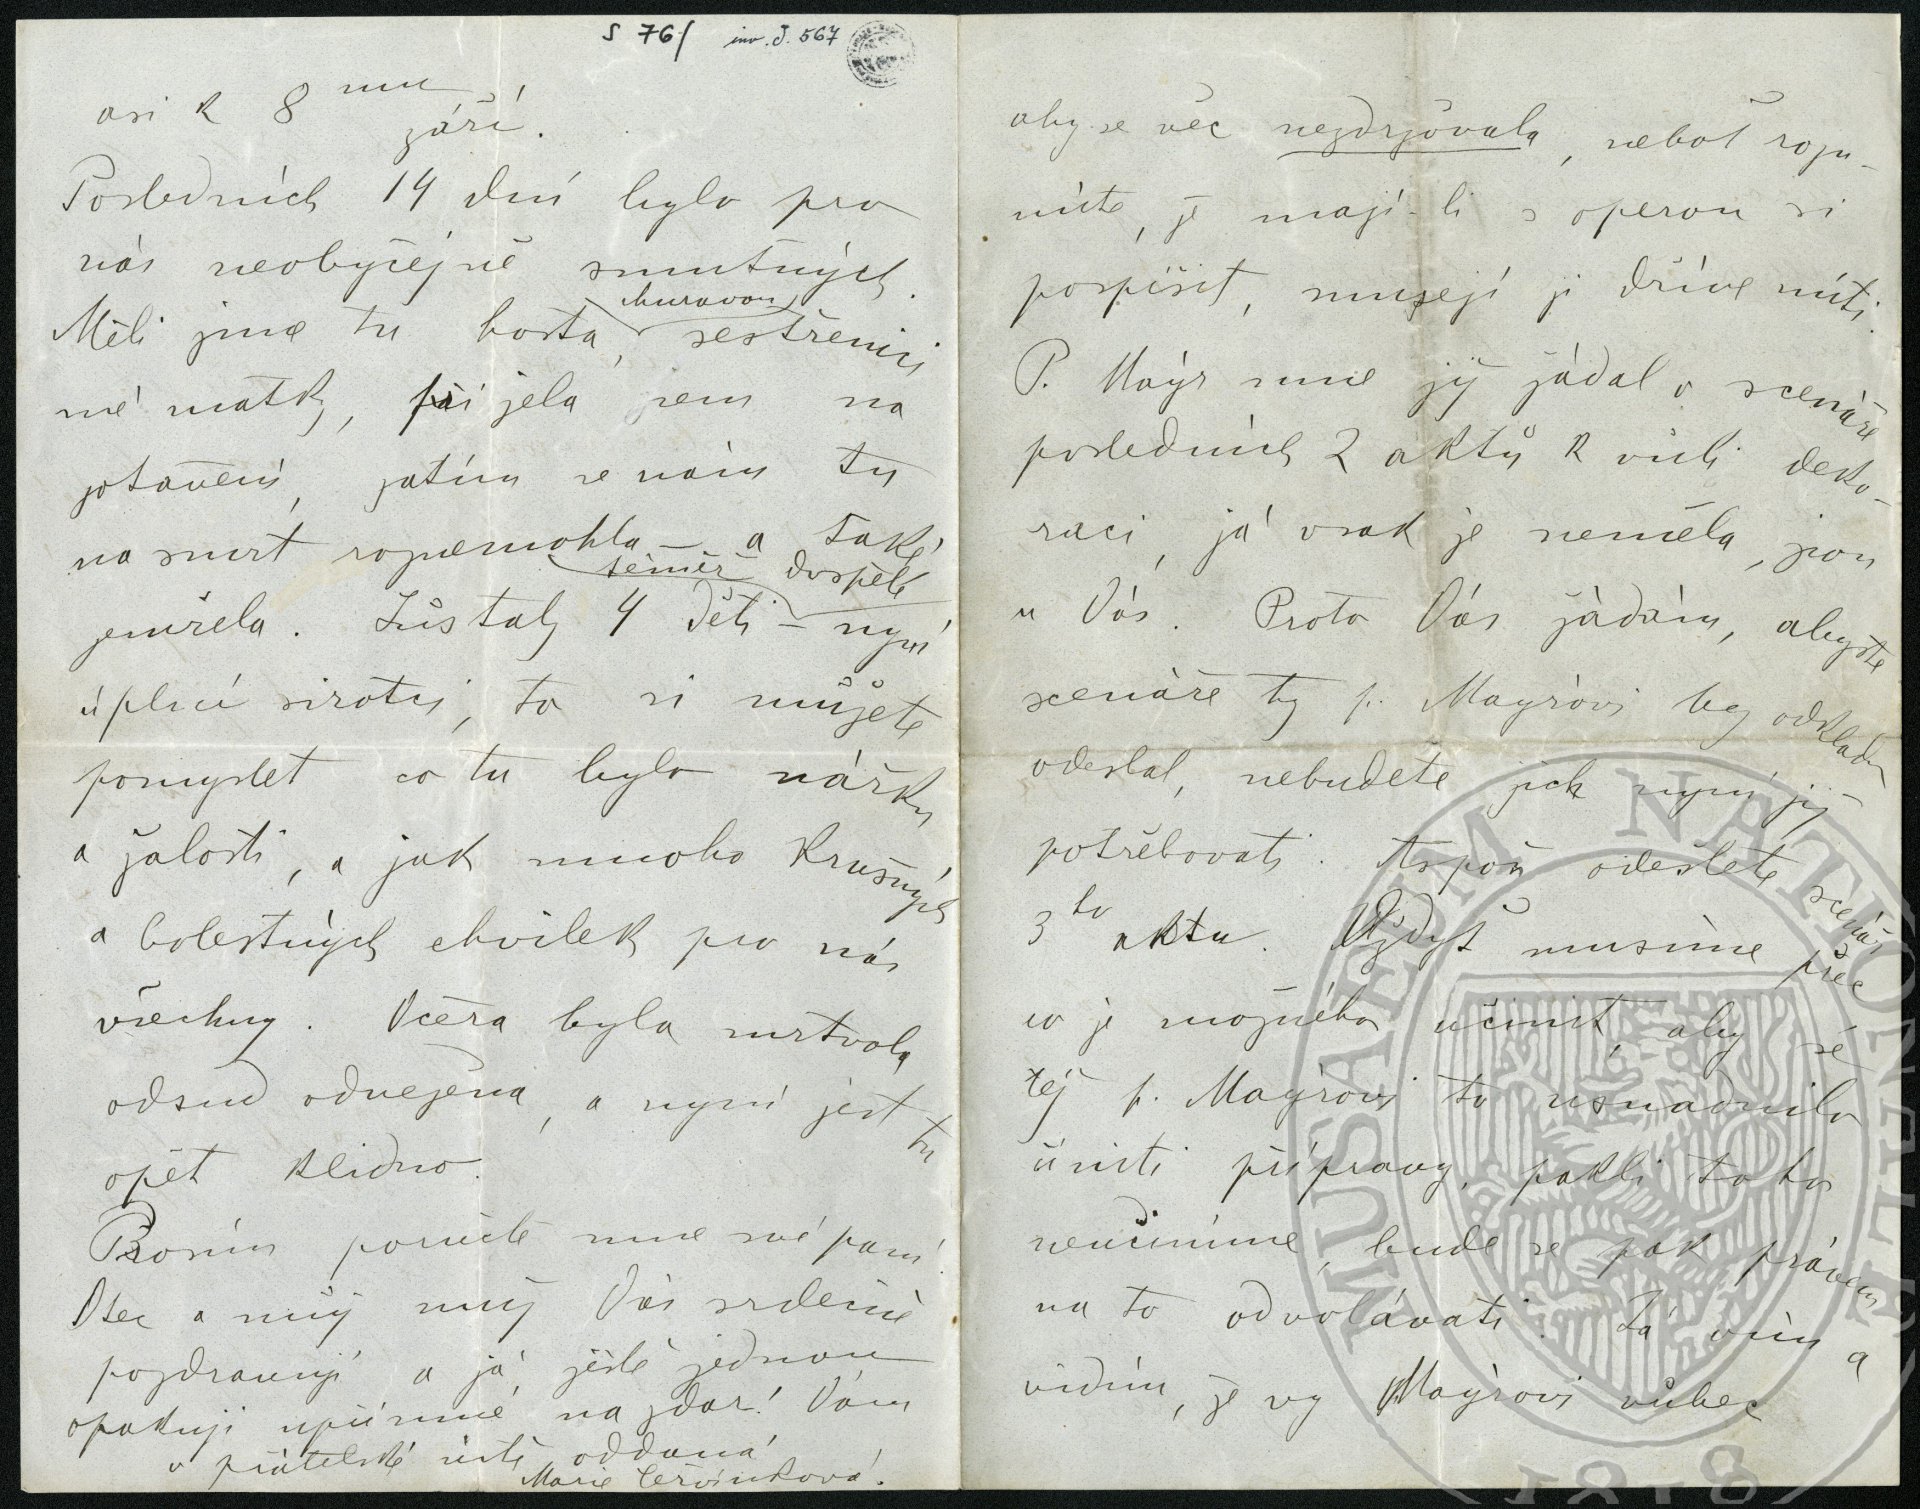 S 76/ inv. č. 567
asi k 8 mu
září.
Posledních 14 dní bylo pro
nás neobyčejně smutných.
Měli jsme tu hosta, churavou sestřenici
mé matky, přijela sem na
zotavení, zatím se nám tu
na smrt roznemohla – a také
zemřela. Zůstaly 4 téměř dospělé děti – nyní
úplní sirotci, to si můžete
pomyslet co tu bylo nářku
a žalosti, a jak mnoho krušných
a bolestných chvilek pro nás
všechny. Včera byla mrtvola
odsud odvežena, a nyní jest tu
opět klidno.
Prosím poručte mne své paní.
Otec a můj muž Vás srdečně
pozdravují a já ještě jednou
opakuji upřímné na zdar! Vám
v přátelské úctě oddaná
Marie Červinková.
aby se věc nezdržovala, neboť rozu-
míte, že mají-li s operou si
pospíšit, musejí ji dříve míti.
P. Mayr mne již žádal o scenáře
posledních 2 aktů k vůli deko-
raci, já však je neměla, jsou
u Vás. Proto Vás žádám, abyste
scenáře ty p. Mayrovi bez odkladu
odeslal, nebudete jich nyní již
potřebovati. Aspoň odešlete scenář
3 ho aktu. Vždyť musíme přec
co je možného učinit, aby se
též p. Mayrovi to usnadnilo
činiti přípravy, pakli toho
neučiníme, bude se pak právem
na to odvolávati. Já vím a
vidím, že vy Mayrovi vůbec
MUSAEUM NATIONALE
1818